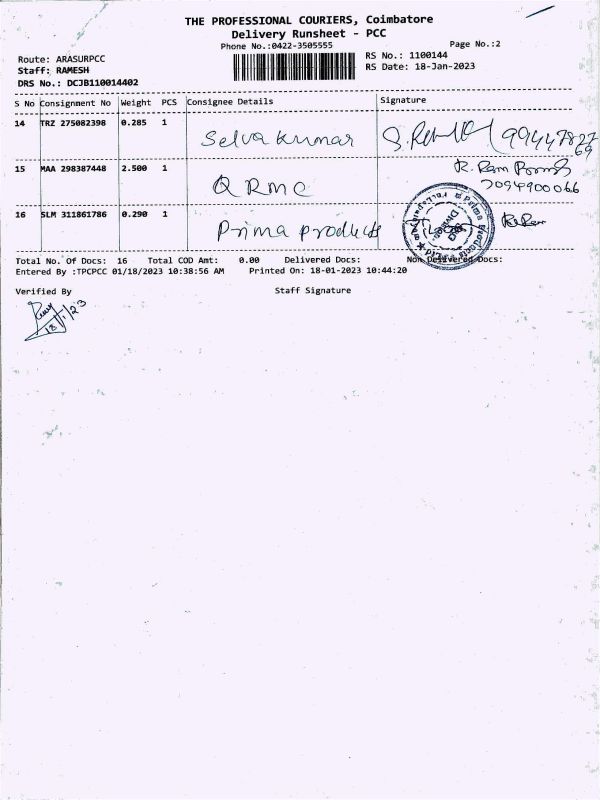 THE PROFESSIONAL COURIERS, Coimbatore
Delivery Runsheet - PCC
Phone No.:0422-3505555
Page No.:2
Route: ARASURPCC
RS No.: 1100144
Staff: RAMESH
RS Date: 18-Jan-2023
DRS No.: DCJB110014402
S No Consignment No Weight PCS Consignee Details Signature
14 TRZ 275082398 0.285 1 Selva Kumar
15 MAA 298387448 2.500 1 QRMC
16 SLM 311861786 0.290 1 Prima products
Total No. Of Docs: 16 Total COD Amt: 0.00 Delivered Docs: Non Delivered Docs:
Entered By :TPCPCC 01/18/2023 10:38:56 AM Printed On: 18-01-2023 10:44:20
Verified By Staff Signature
18/1/23